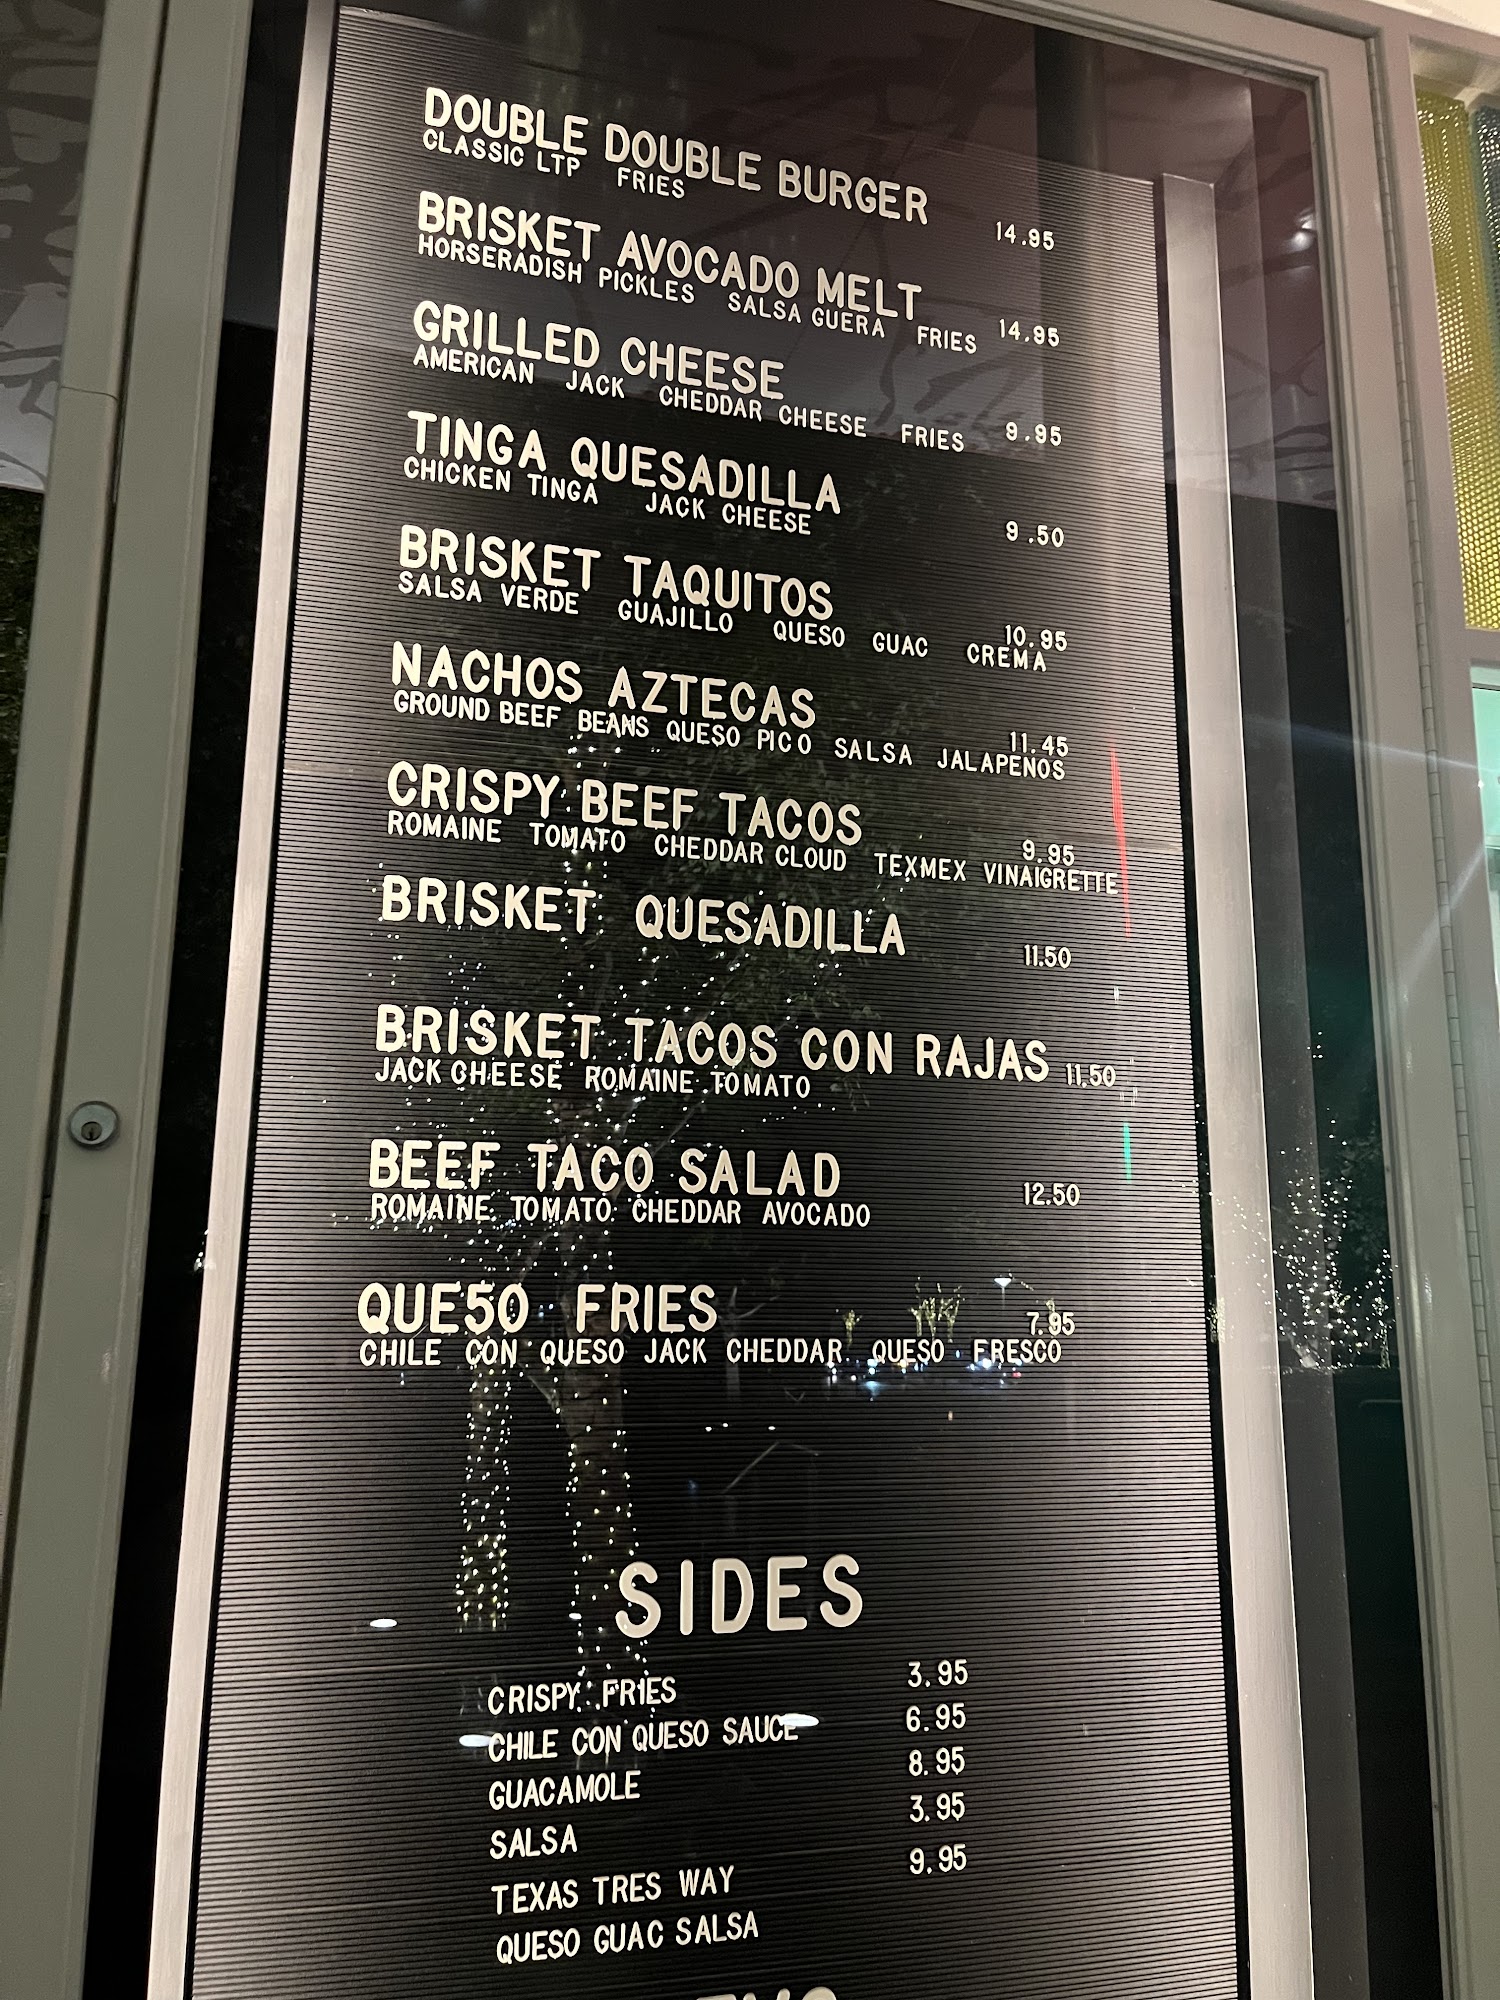 DOUBLE DOUBLE BURGER 14.95
CLASSIC LTP FRIES
BRISKET AVOCADO MELT 14.95
HORSERADISH PICKLES SALSA GUERA FRIES
GRILLED CHEESE 9.95
AMERICAN JACK CHEDDAR CHEESE FRIES
TINGA QUESADILLA 9.50
CHICKEN TINGA JACK CHEESE
BRISKET TAQUITOS 10.95
SALSA VERDE GUAJILLO QUESO GUAC CREMA
NACHOS AZTECAS 11.45
GROUND BEEF BEANS QUESO PICO SALSA JALAPENOS
CRISPY BEEF TACOS 9.95
ROMAINE TOMATO CHEDDAR CLOUD TEXMEX VINAIGRETTE
BRISKET QUESADILLA 11.50
BRISKET TACOS CON RAJAS 11.50
JACK CHEESE ROMAINE TOMATO
BEEF TACO SALAD 12.50
ROMAINE TOMATO CHEDDAR AVOCADO
QUE50 FRIES 7.95
CHILE CON QUESO JACK CHEDDAR QUESO FRESCO
SIDES
CRISPY FRIES 3.95
CHILE CON QUESO SAUCE 6.95
GUACAMOLE 8.95
SALSA 3.95
TEXAS TRES WAY 9.95
QUESO GUAC SALSA